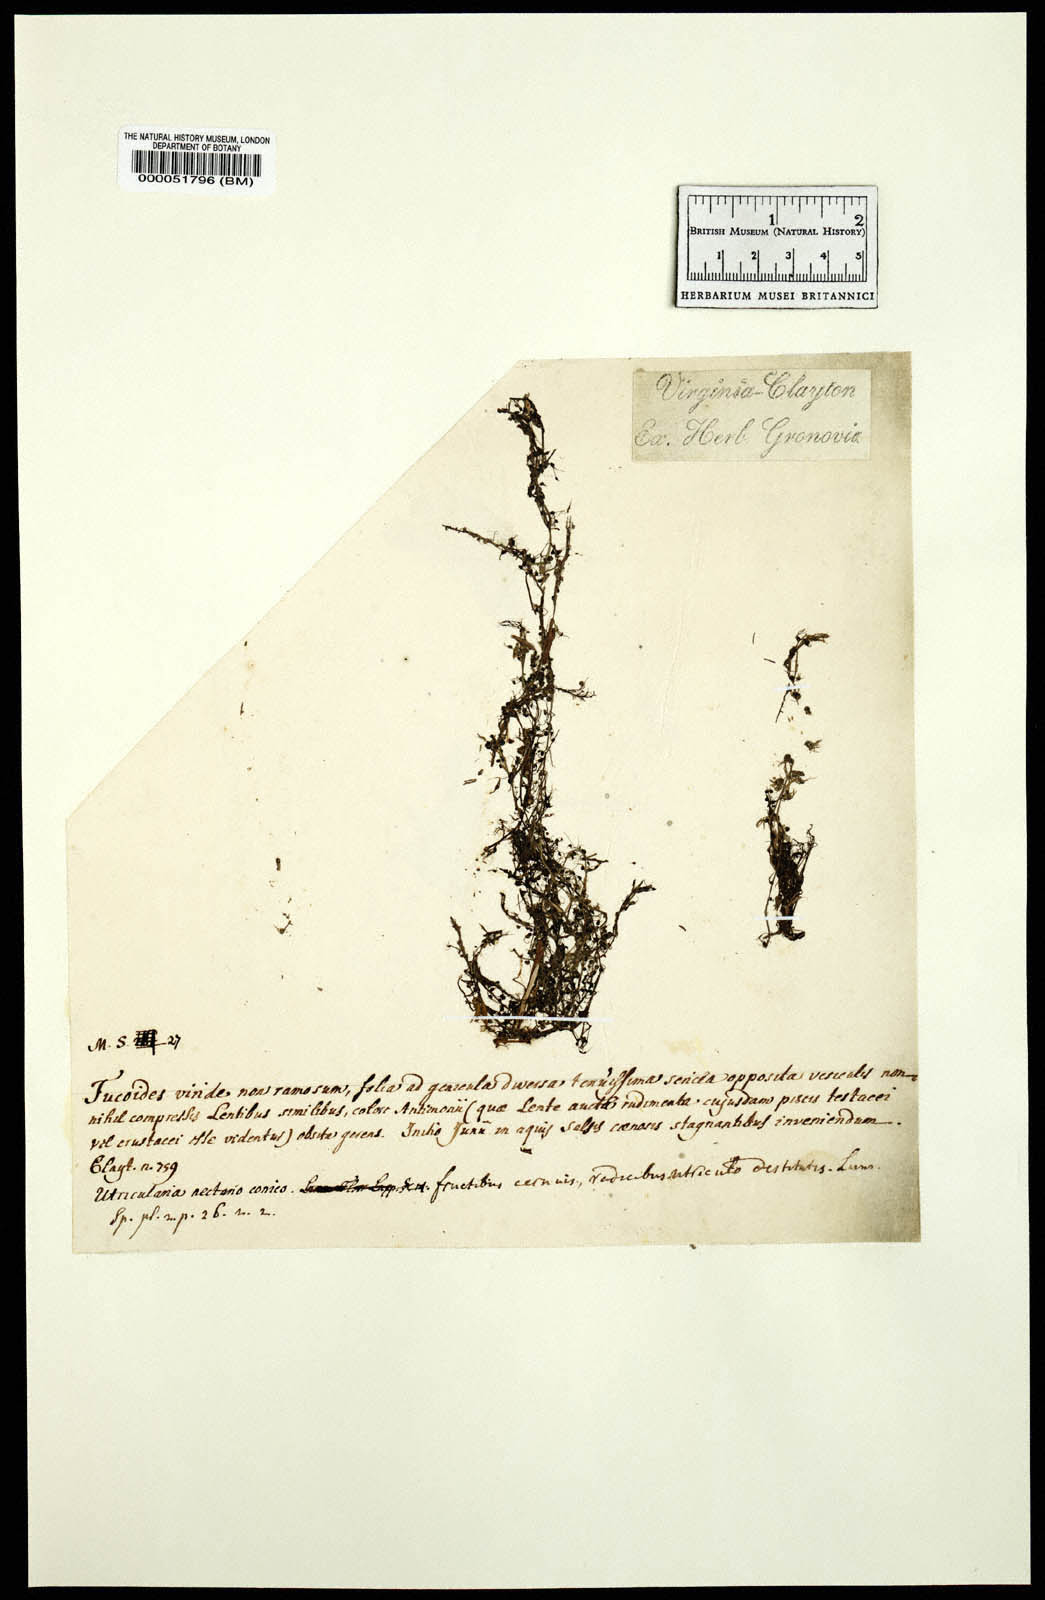 THE NATURAL HISTORY MUSEUM, LONDON
DEPARTMENT OF BOTANY
000051796 (BM)
1 2
BRITISH MUSEUM (NATURAL HISTORY)
1 2 3 4 5
HERBARIUM MUSEI BRITANNICI
Virginia - Clayton
Ex. Herb. Gronovii
M. S. 27
Fucoides viride non ramosum, folia ad genicula diversa tenuissima sericea opposita vesiculis non-
nihil compressis Lentibus similibus, colore Antimonii (quæ Lente aucta rudimenta cujusdam piscis testacei
vel crustacei esse videntur) obsita gerens. Initio Junii in aquis salsis cænosis stagnantibus inveniendum.
Clayt. n. 759
Utricularia nectario conico. fructibus cernuis, radicibus utriculo destitutis. Linn.
Sp. pl. 2. p. 26. n. 2.